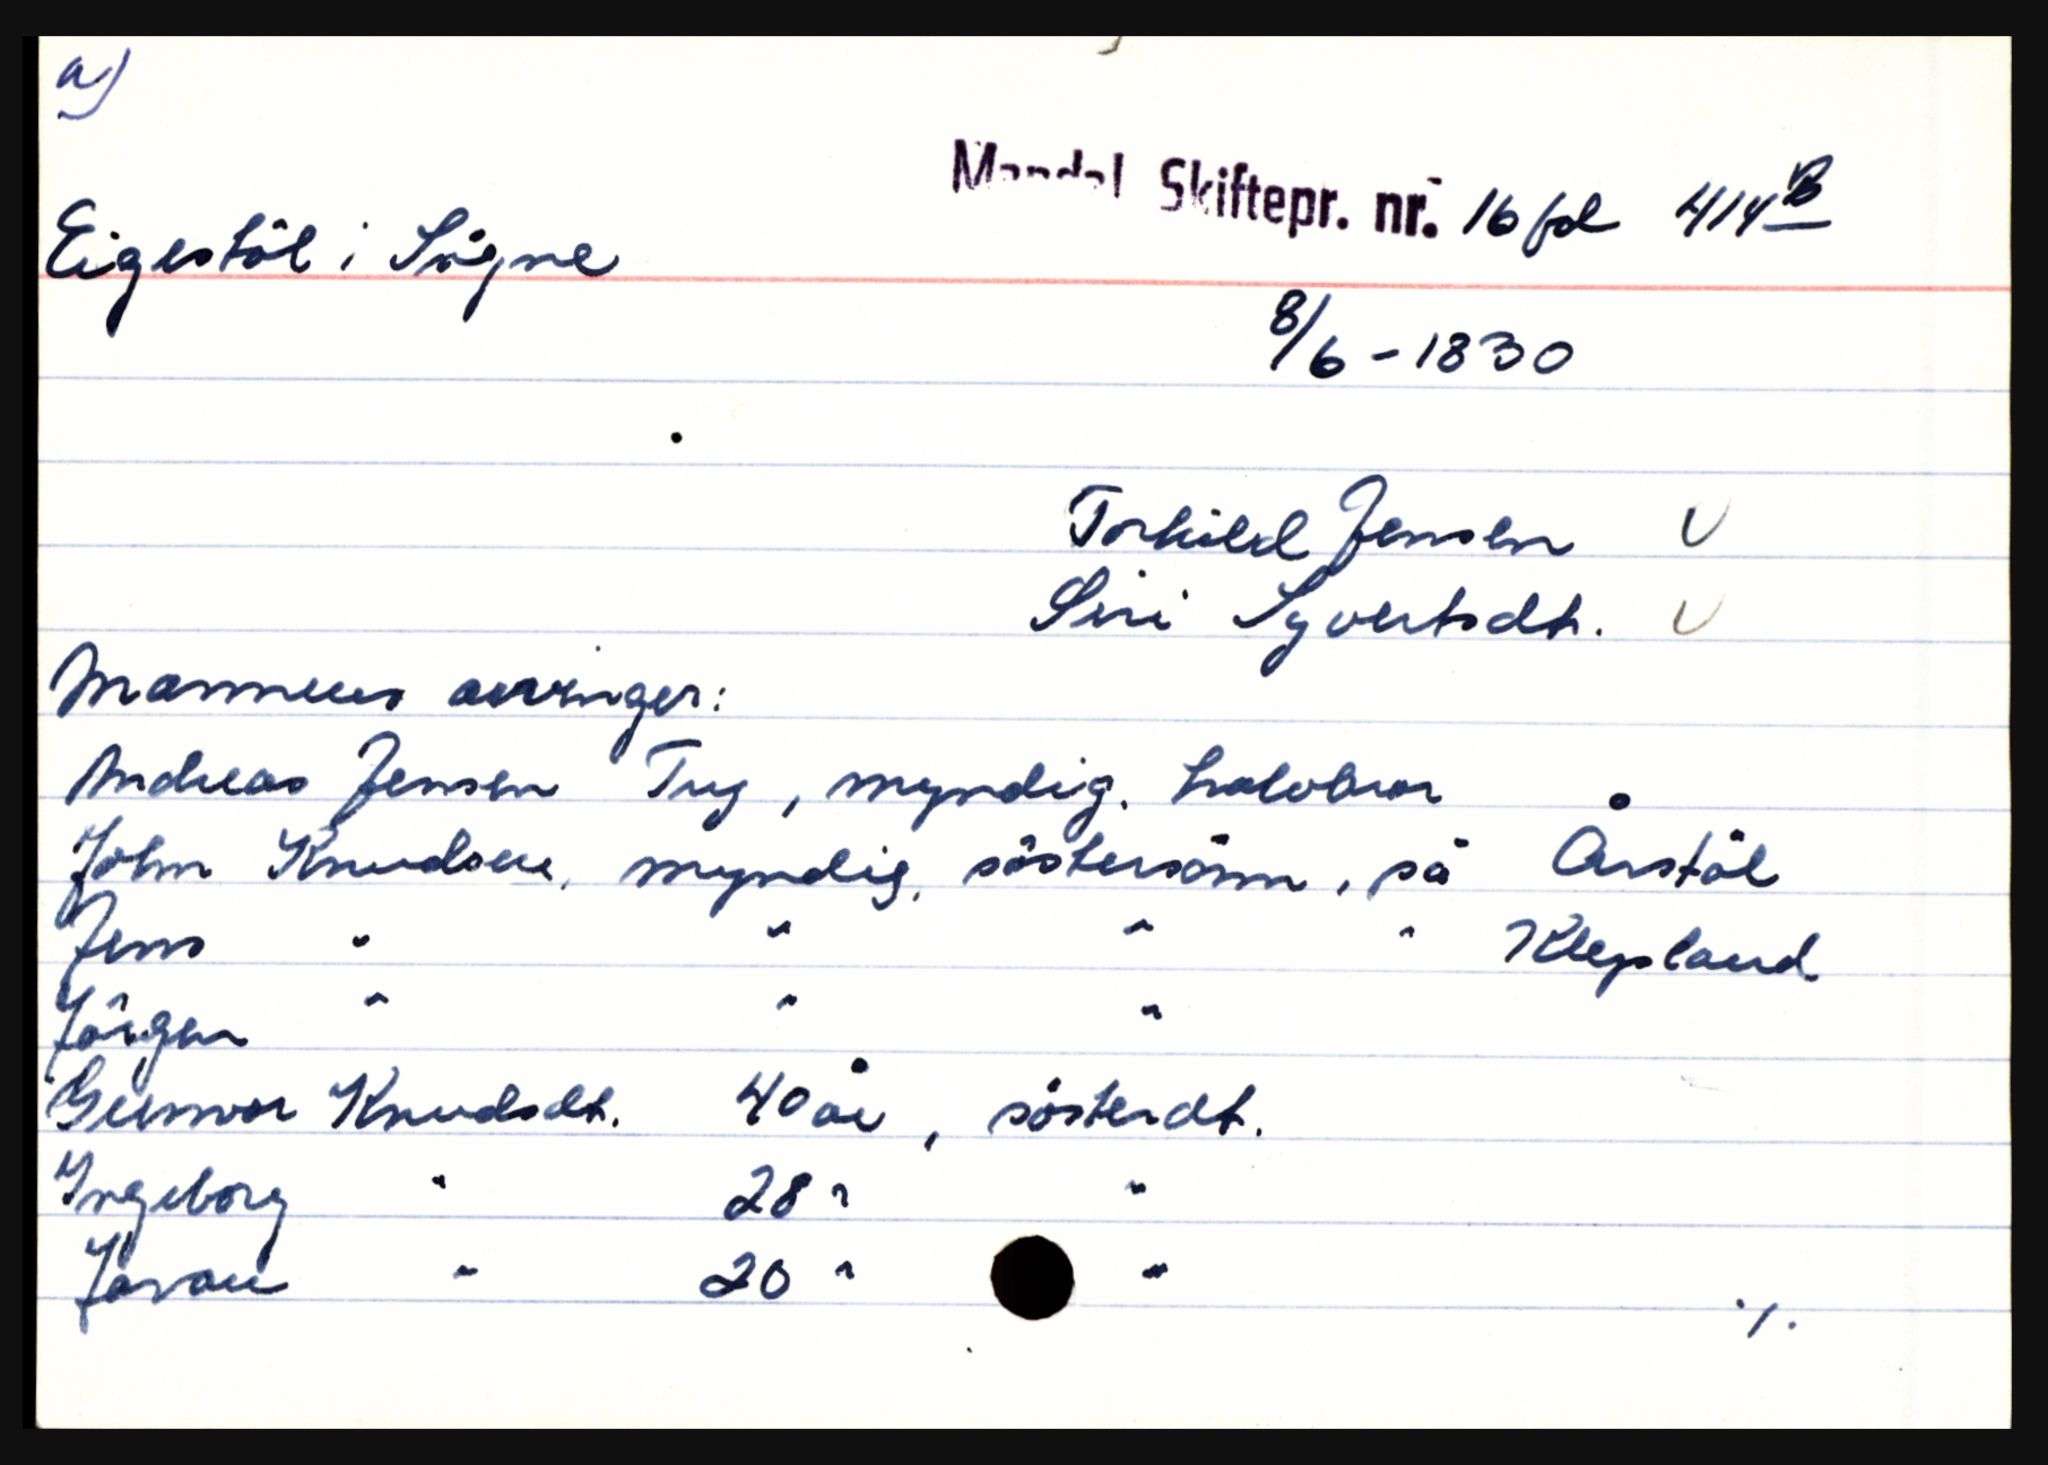 a)
Mandal Skiftepr. nr. 16 fol 414B
Eigestöl i Sögne
8/6 - 1830
Torkild Jensen
Siri Syvertsdt.
Mannens arvinger:
Andreas Jensen Try, myndig, halvbror
John Knudsen, myndig, söstersönn, på Årstöl
Jens " " " " Klepland
Jörgen " " "
Gunvor Knudsdt. 40 år, sösterdt.
Ingeborg " 28 " "
Joran " 20 " "
./.